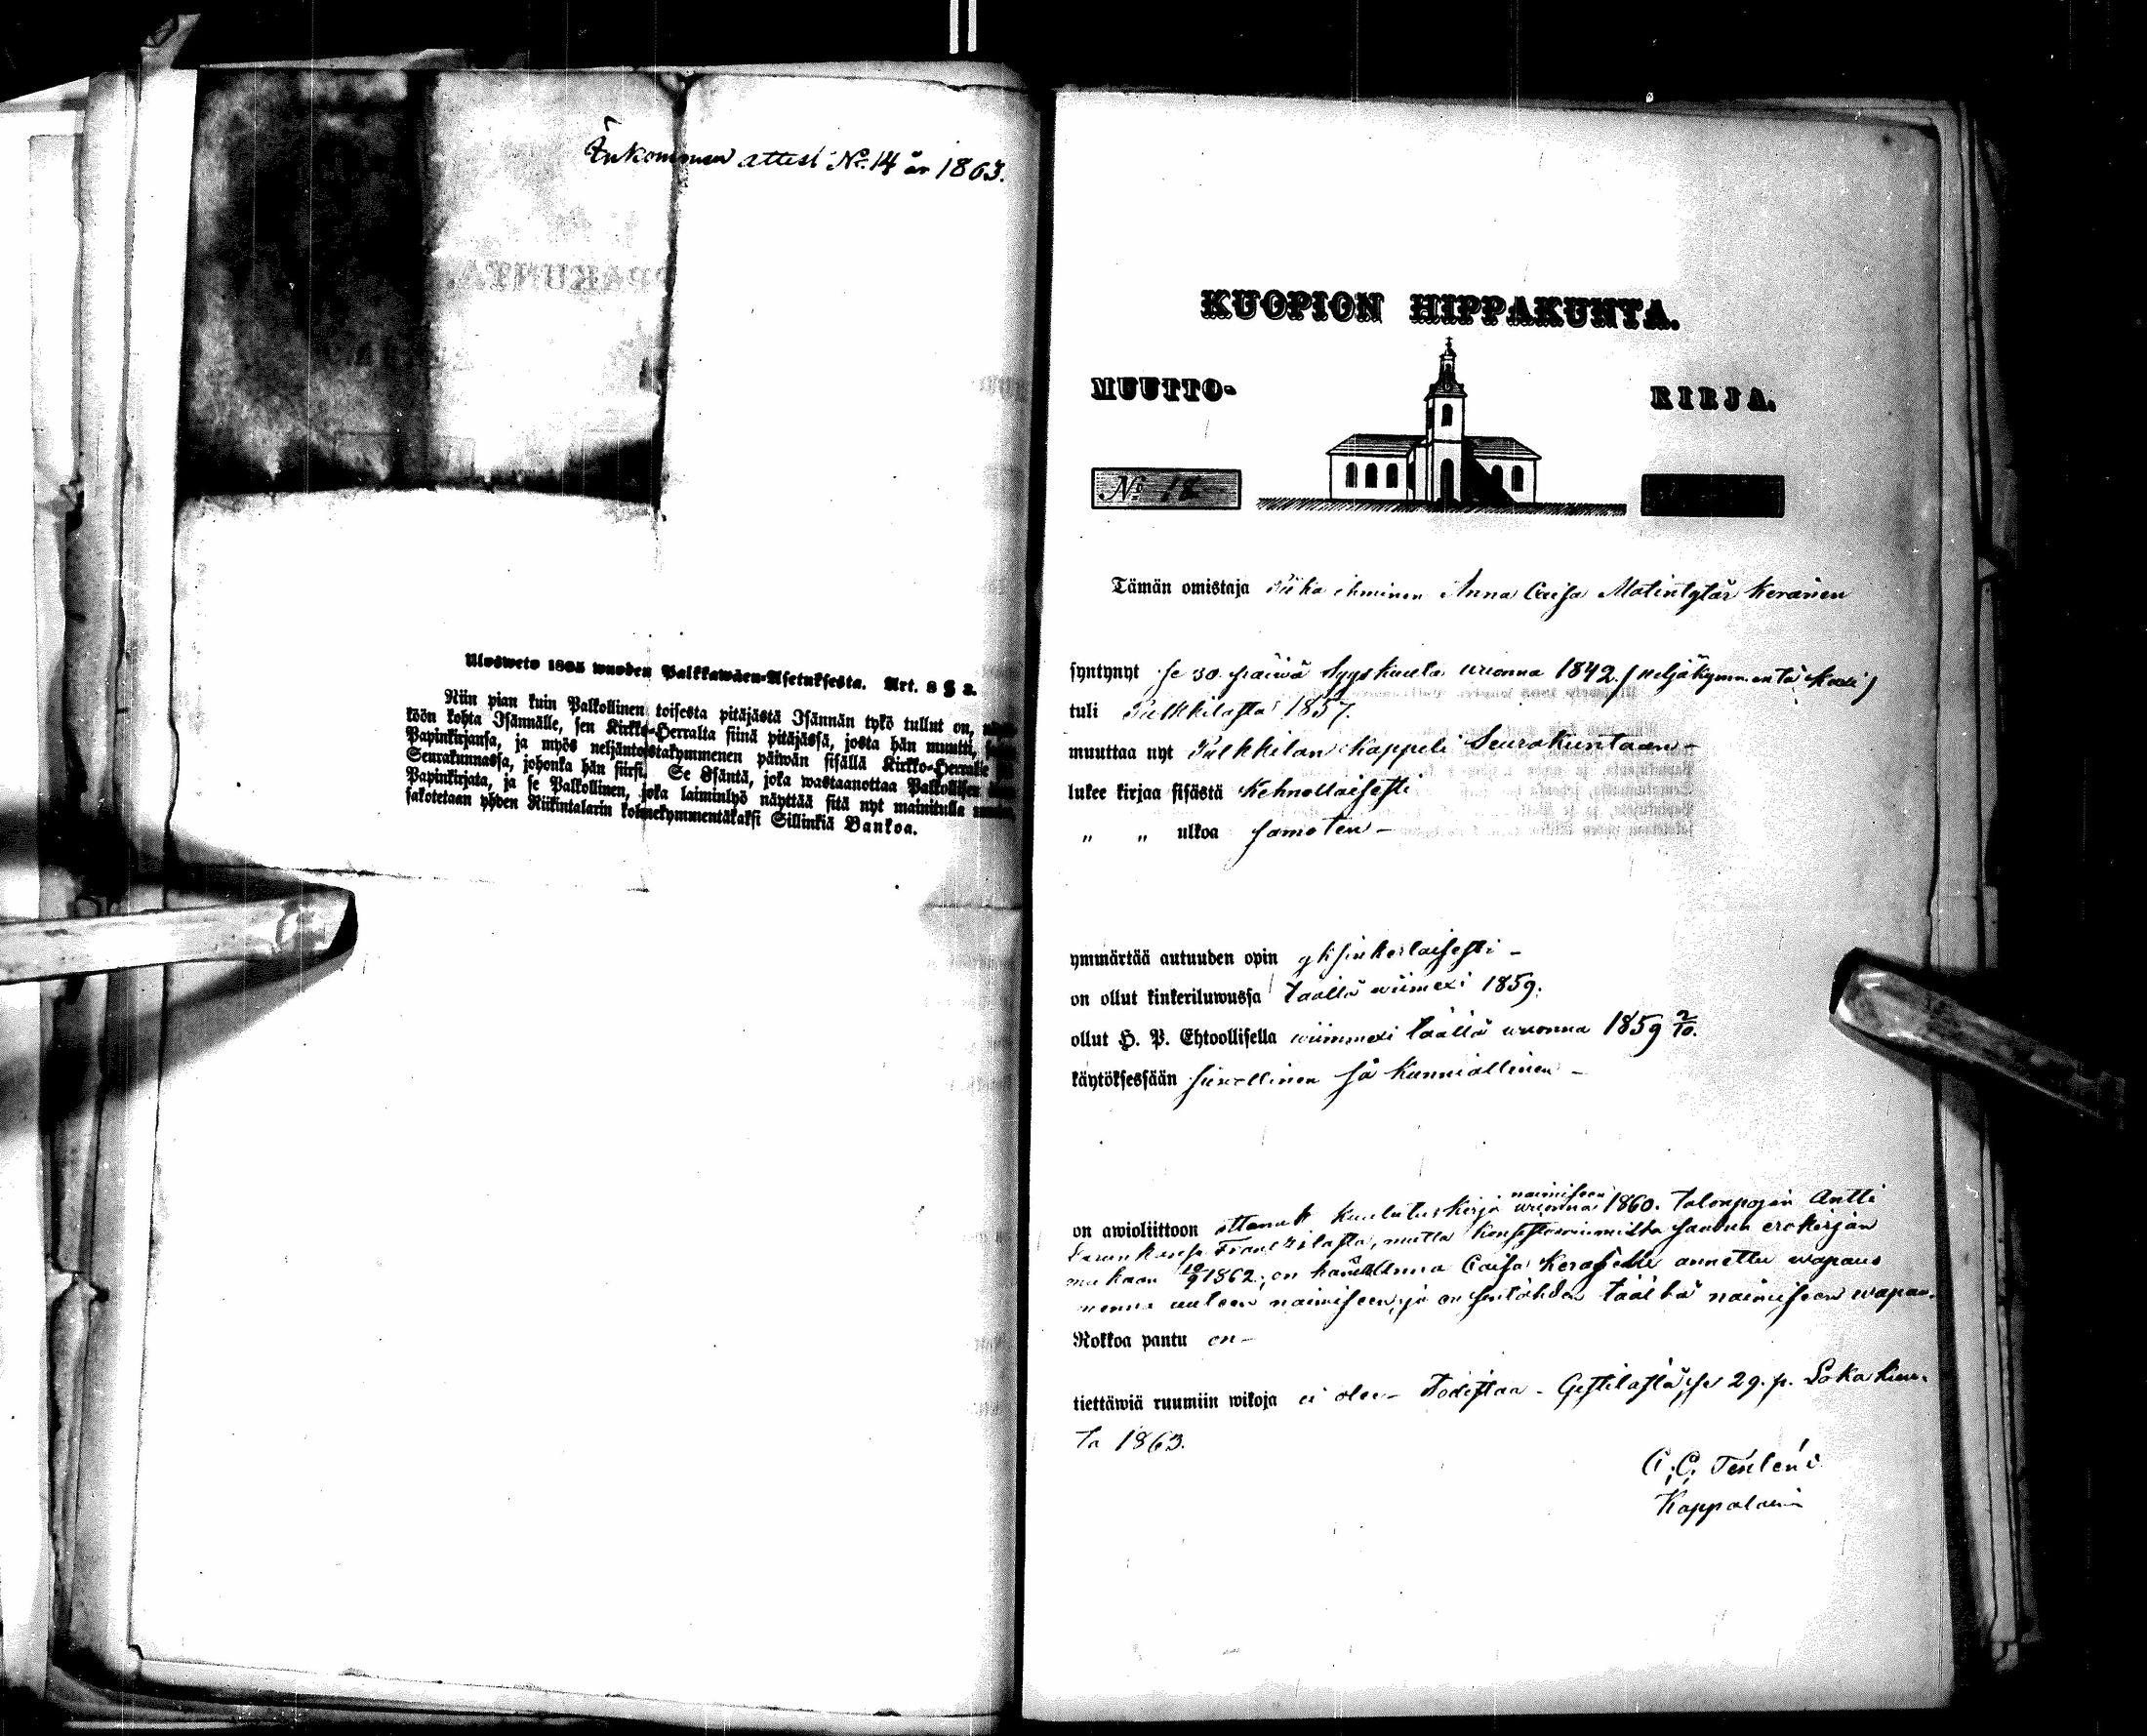 Inkommen attest No 14 år 1863.
Ulosweto 1805 wuoden Palkkawäen-Asetuksesta. Art. 8 § 2.
Niin pian kuin Palkollinen toisesta pitäjästä Isännän tykö tullut on,
köön kohta Isännälle, sen Kirkko-Herralta siinä pitäjässä, josta hän muutti,
Papinkirjansa, ja myös neljäntoistakymmenen päiwän sisällä Kirkko-Herralle
Seurakunnassa, johonka hän siirsi. Se Isäntä, joka wastaanottaa Palkollisen
Papinkirjata, ja se Palkollinen, joka laiminlyö näyttää sitä nyt mainitulla
sakotetaan yhden Riikintalarin kolmekymmentäkaksi Sillinkiä Bankoa.
KUOPION HIPPAKUNTA.
MUUTTO- KIRJA.
No 18
Tämän omistaja Piika ihminen Anna Caisa Matintytär Keränen
syntynyt se 30 päiwä Syyskuuta wuonna 1842. (neljäkymmentä kaxi)
tuli Pulkkilasta 1857.
muuttaa nyt Pulkkilan Kappeli Seurakuntaan -
lukee kirjaa sisästä Kehnollaisesti
" " ulkoa samoten -
ymmärtää autuuden opin yksinkertaisesti -
on ollut kinkeriluwussa täällä wiimexi 1859.
ollut H. P. Ehtoollisella wiimmexi täällä wuonna 1859 2/10.
käytöksessään siwollinen ja kunniallinen -
naimiseen
on awioliittoon ottanut kuulutuskirja wuonna 1860. talonpojan Antti
Frantsilasta, mutta Konsistoriumilta saadun erokirjan
mukaan 10/9 1862, on Anna Caisa Keräselle annettu wapaus
mennä uuteen naimiseen, ja on sentähden täältä naimiseen wapaa.
Rokkoa pantu on -
tiettäwiä ruumiin wikoja ei ole - Todistaa - Gestilästä, se 29. p. Lokakuu-
ta 1863.
Kappalainen